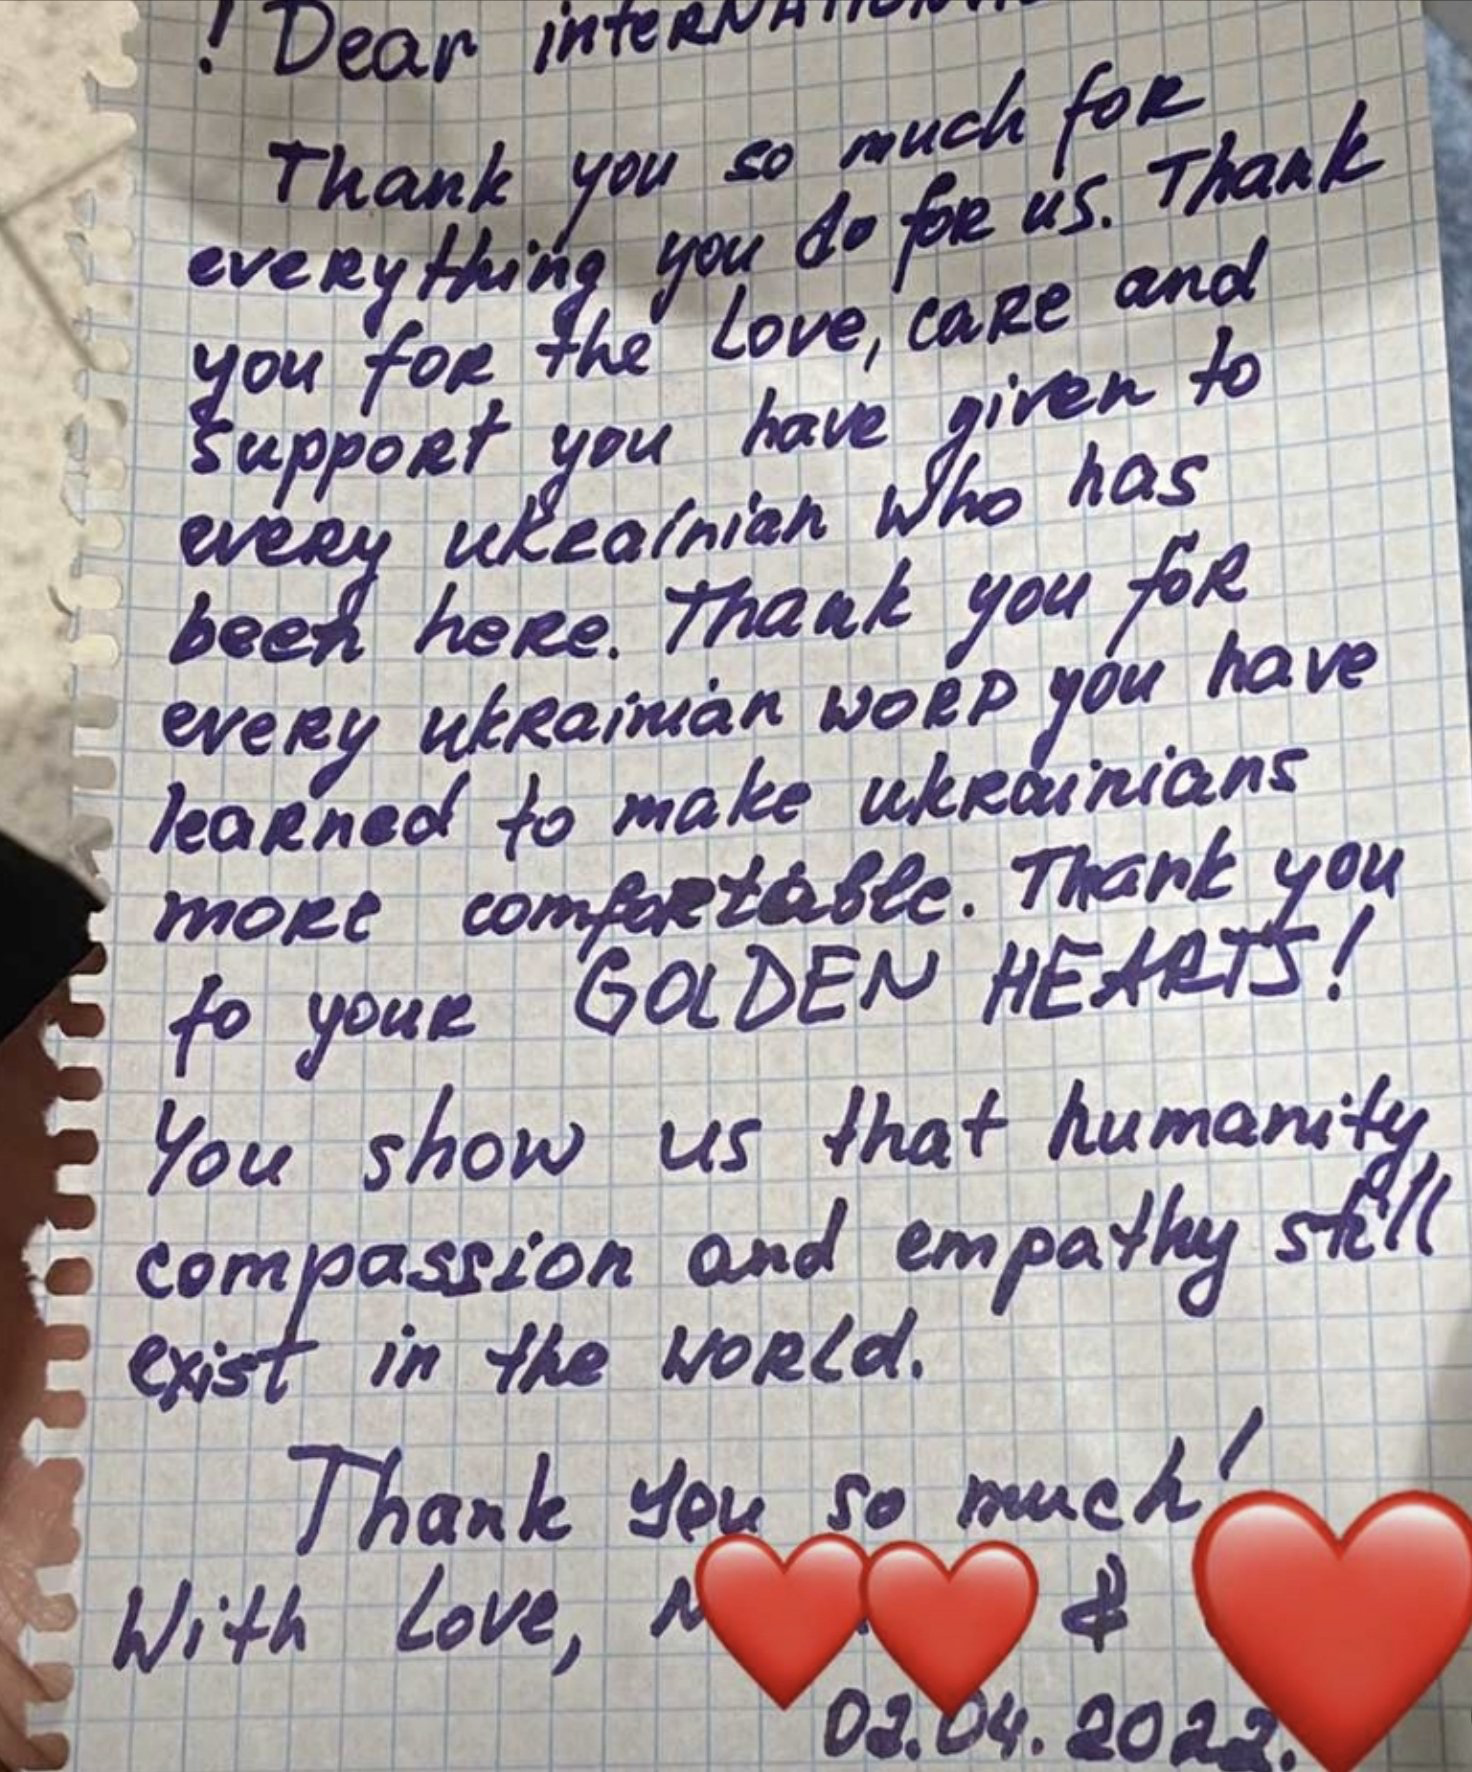 ! Dear
Thank you so much for
everything you do for us. Thank
you for the Love, care and
support you have given to
every ukrainian who has
been here. Thank you for
every ukrainian word you have
learned to make ukrainians
more comfortable. Thank you
to your GOLDEN HEARTS!
You show us that humanity,
compassion and empathy still
exist in the world.
Thank you so much!
With Love, &
02.04.2022.